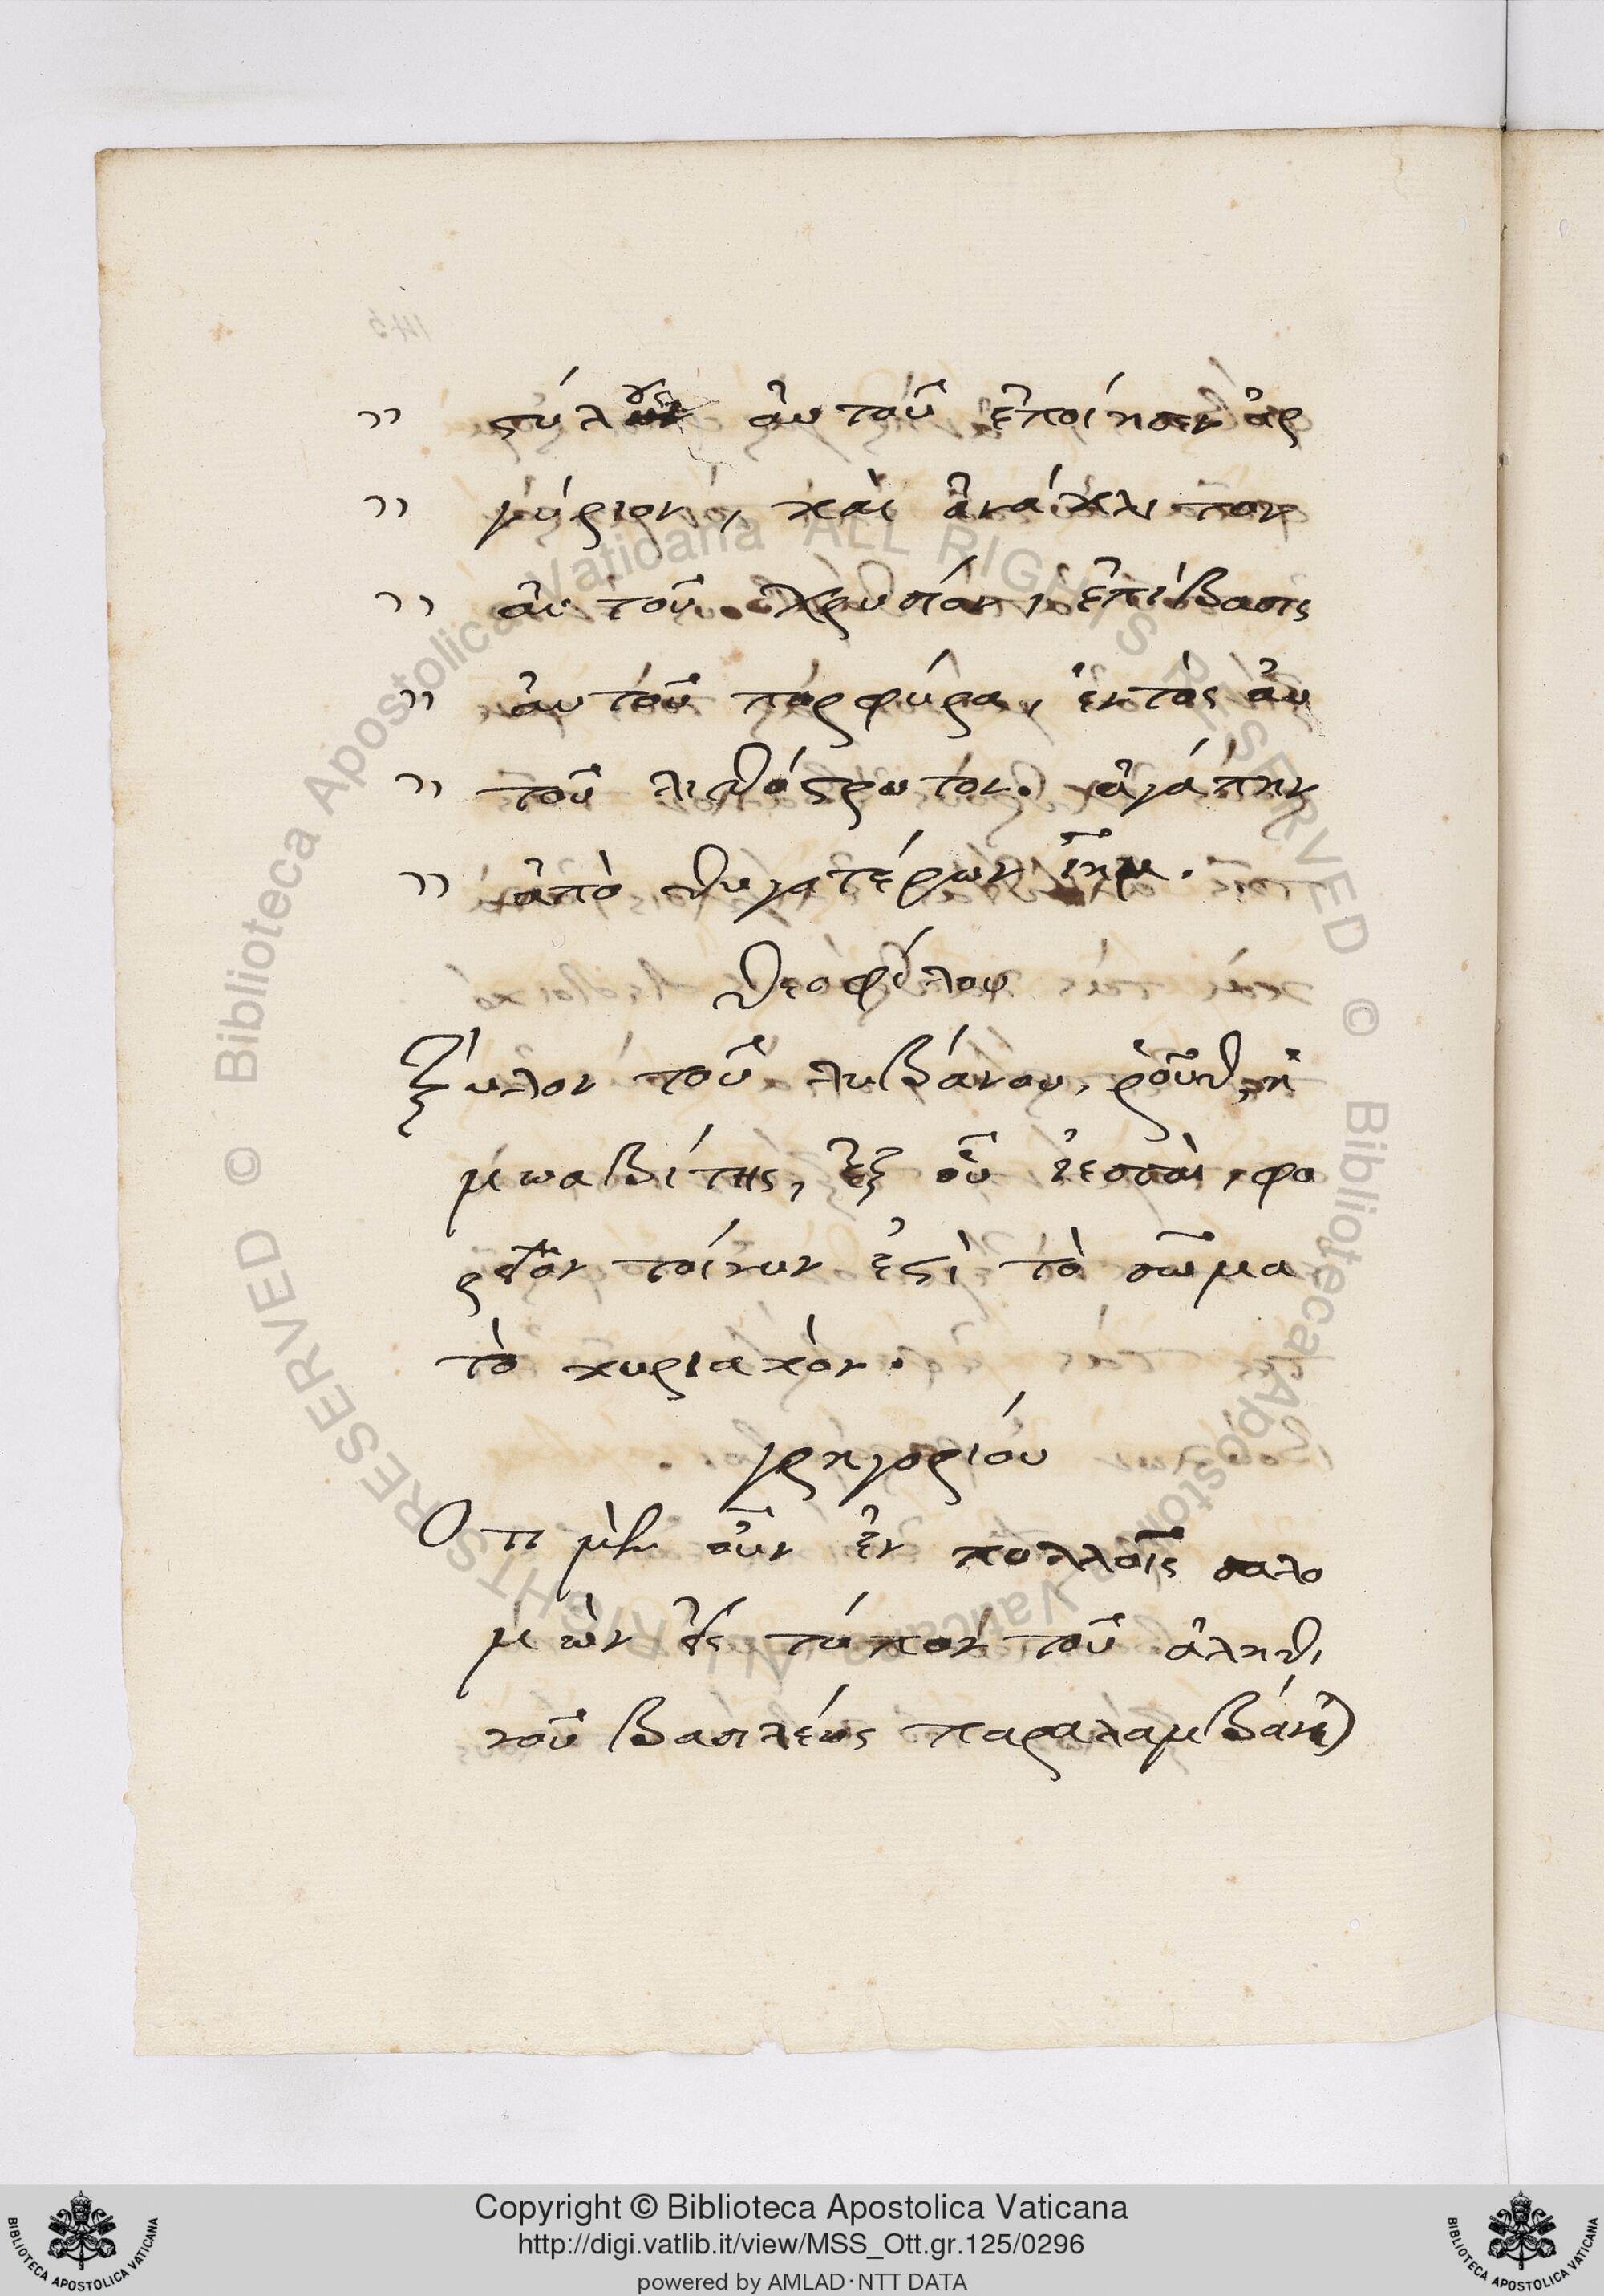 " στύλους αὐτοῦ ἐποίησεν ἀρ
" γύριον, καὶ ἀνάκλιτον
" αὐτοῦ χρυσίον, ἐπίβασις
" αὐτοῦ πορφύρα, ἐντὸς αὐ
" τοῦ λιθόστρωτον. ἀγάπην
" ἀπὸ θυγατέρων ἰημ.
θεοφίλου
Ξύλον τοῦ λιβάνου, ῥοῦθ, ἡ
μωαβίτης, ἐξ οὗ ἰεσσαὶ, φο
ρεῖον τοίνυν ἐστὶ τὸ σῶμα
τὸ κυριακὸν.
γρηγορίου
Οτι μὲν οὖν ἐν πολλοῖς σαλο
μὼν εἰς τύπον τοῦ ἀληθι
νοῦ βασιλέως παραλαμβάνε)
Copyright © Biblioteca Apostolica Vaticana
http://digi.vatlib.it/view/MSS_Ott.gr.125/0296
powered by AMLAD·NTT DATA
BIBLIOTECA APOSTOLICA VATICANA
BIBLIOTECA APOSTOLICA VATICANA
© Biblioteca Apostolica Vaticana ALL RIGHTS RESERVED © Biblioteca Apostolica Vaticana ALL RIGHTS RESERVED